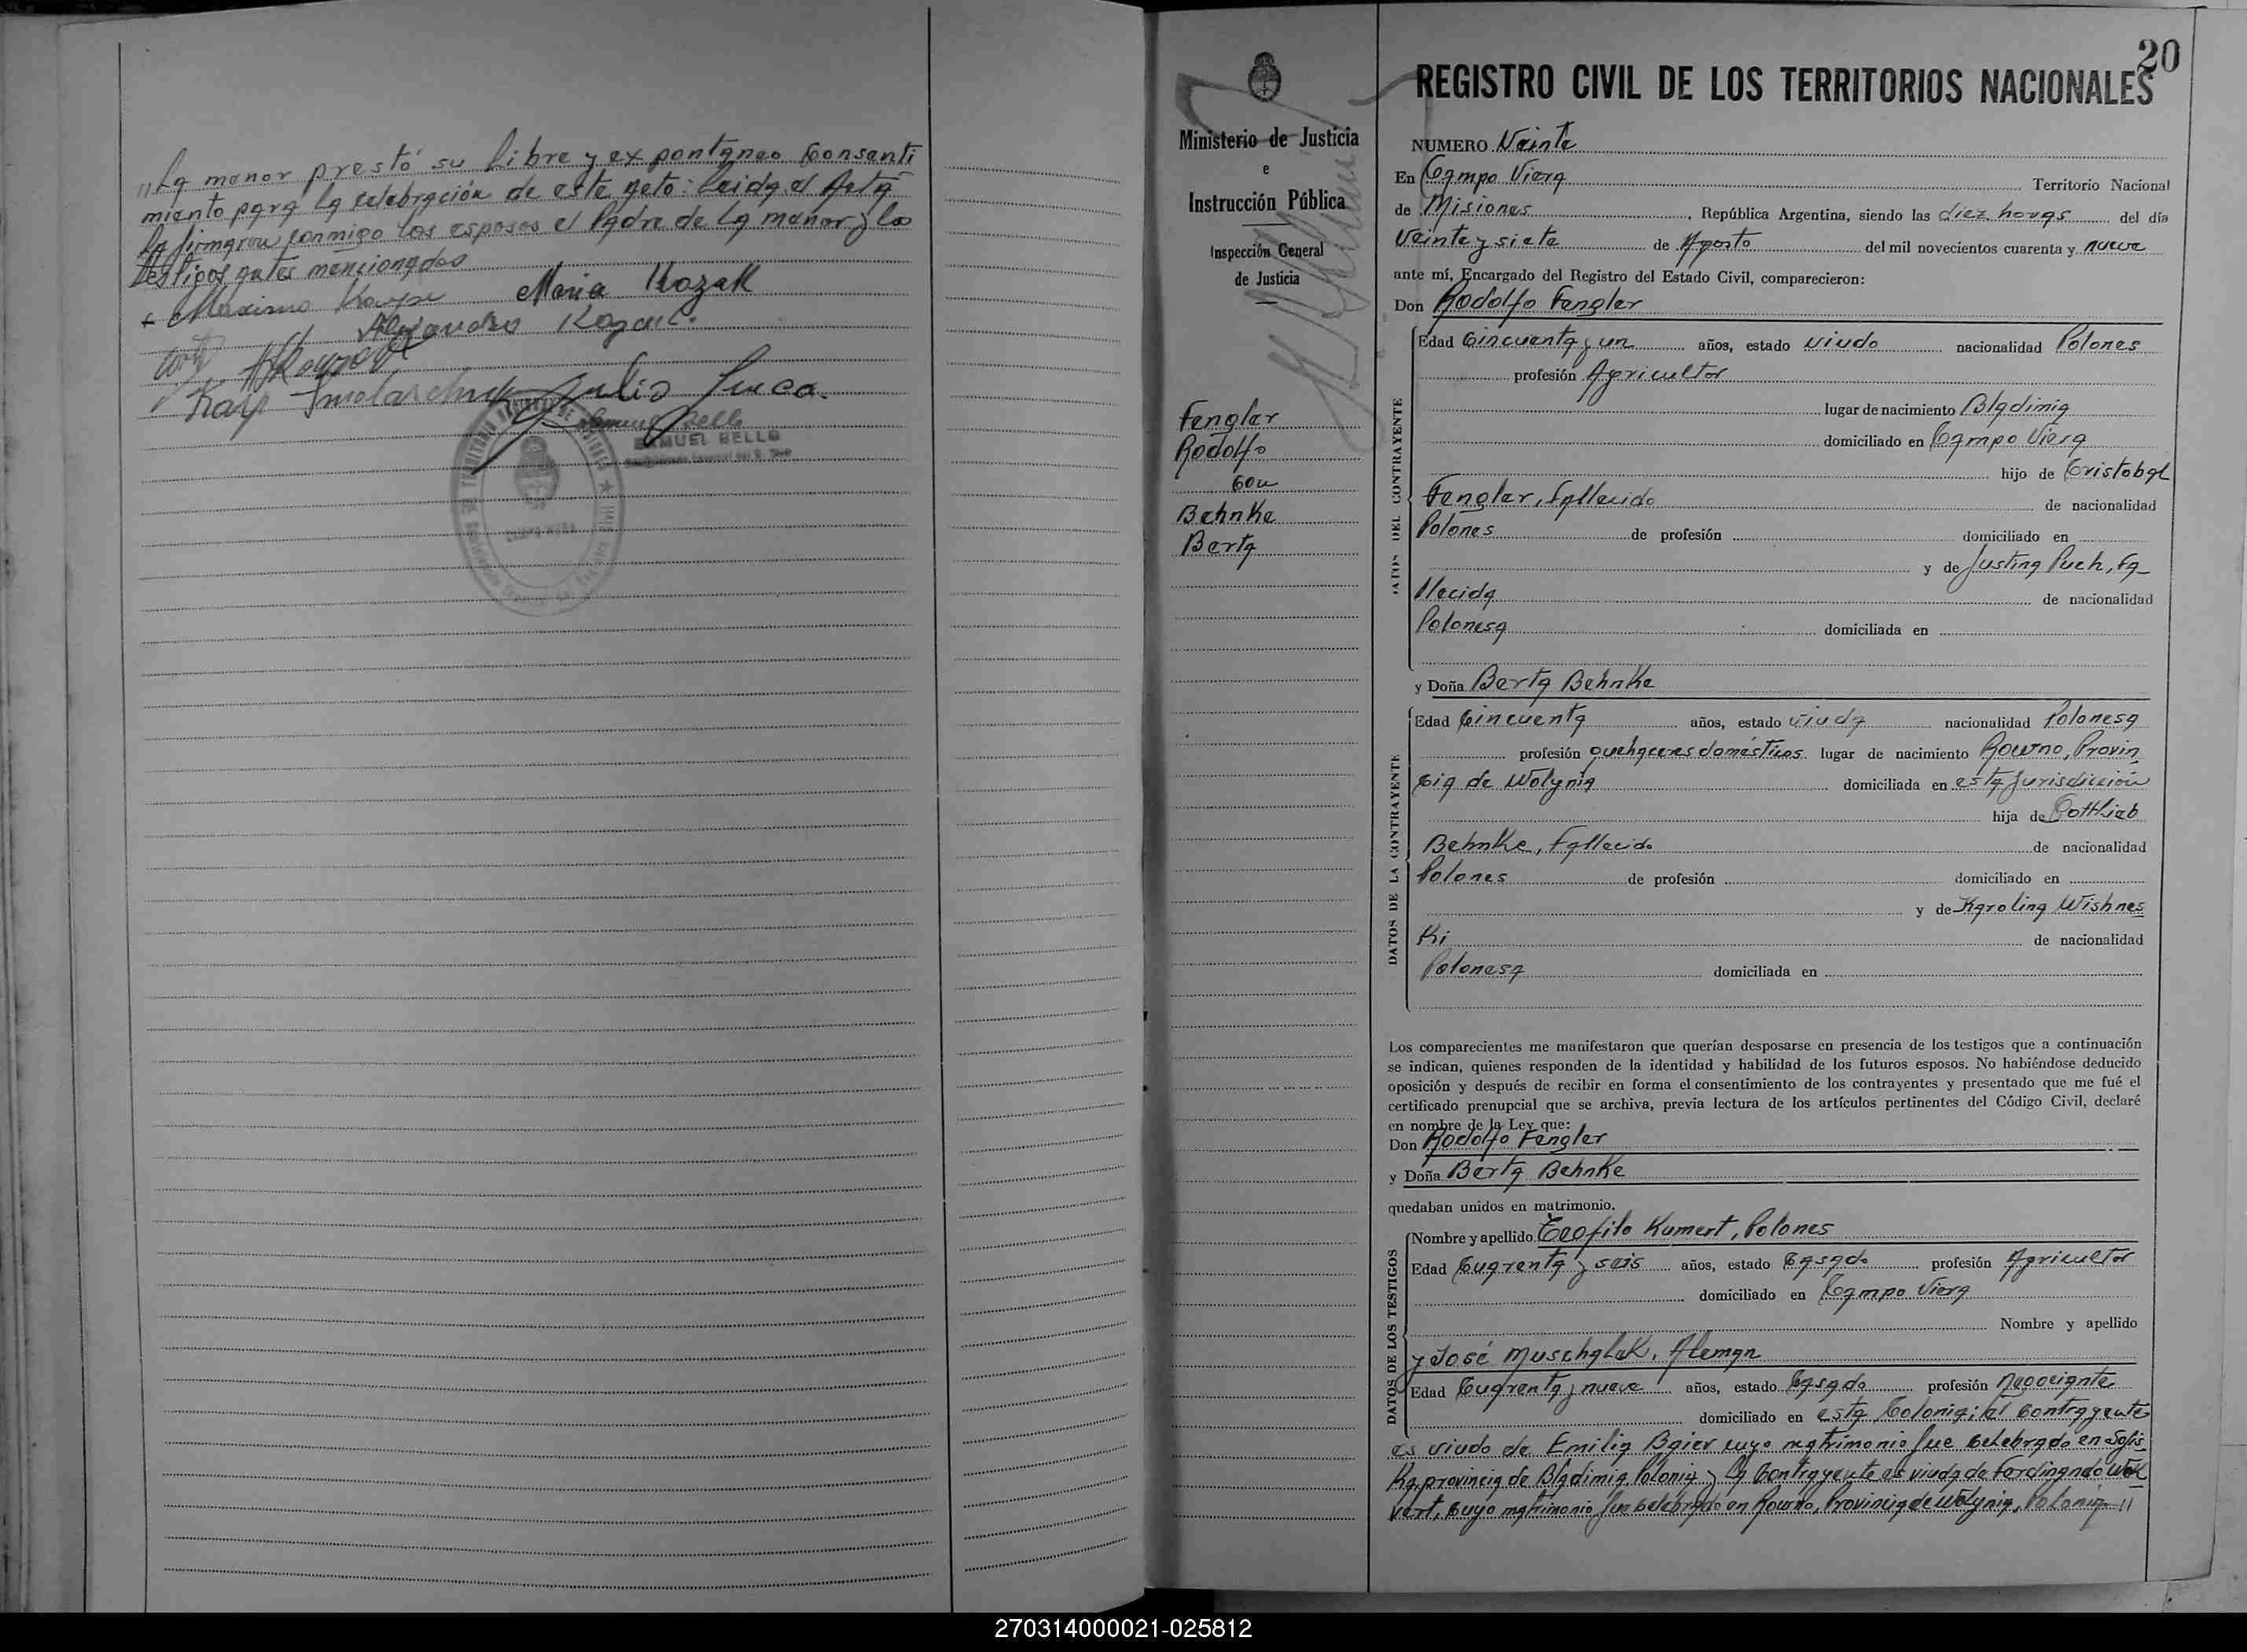 "La menor prestó su libre y expontaneo Consenti
miento para la celebración de este acto: Leida el Acta
la firmaron conmigo los esposos el Padre de la menor y los
testigos antes mencionados
Maria Kozak
Julio
SAMUEL BELLO
20
REGISTRO CIVIL DE LOS TERRITORIOS NACIONALES
Ministerio de Justicia
e
Instrucción Pública
Inspección General
de Justicia
Fengler
Rodolfo
Con
Behnke
Berta
NUMERO Veinte
En Campo Viera Territorio Nacional
de Misiones, República Argentina, siendo las diez horas del día
Veinte y siete de Agosto del mil novecientos cuarenta y nueve
ante mí, Encargado del Registro del Estado Civil, comparecieron:
Don Rodolfo Fengler
DATOS DEL CONTRAYENTE
Edad Cincuenta y un años, estado viudo nacionalidad Polones
profesión Agricultor
lugar de nacimiento Bladimia
domiciliado en Campo Viera
hijo de Cristobal
Fengler, Fallecido de nacionalidad
Polones de profesión domiciliado en
y de Justina Puch, Fa
llecida de nacionalidad
Polonesa domiciliada en
y Doña Berta Behnke
DATOS DE LA CONTRAYENTE
Edad Cincuenta años, estado viuda nacionalidad Polonesa
profesión quehaceres domésticos lugar de nacimiento Rowno, Provin
cia de Wolynia domiciliada en esta Jurisdicción
hija de Gottlieb
Behnke, Fallecido de nacionalidad
Polones de profesión domiciliado en
y de Karolina Wishnes
Ki de nacionalidad
Polonesa domiciliada en
Los comparecientes me manifestaron que querían desposarse en presencia de los testigos que a continuación
se indican, quienes responden de la identidad y habilidad de los futuros esposos. No habiéndose deducido
oposición y después de recibir en forma el consentimiento de los contrayentes y presentado que me fué el
certificado prenupcial que se archiva, previa lectura de los artículos pertinentes del Código Civil, declaré
en nombre de la Ley que:
Don Rodolfo Fengler
y Doña Berta Behnke
quedaban unidos en matrimonio.
DATOS DE LOS TESTIGOS
Nombre y apellido Teofilo Kumert, Polones
Edad Cuarenta y seis años, estado Casado profesión Agricultor
domiciliado en Campo Viera
Nombre y apellido
y José Muschalek, Aleman
Edad Cuarenta y nueve años, estado Casado profesión Negociante
domiciliado en esta Colonia; el Contrayente
es viudo de Emilia Baier cuyo matrimonio fue Celebrado en Sofis
Ka, provincia de Bladimia, Polonia y la Contrayente es viuda de Ferdinando
vert, Cuyo matrimonio fue celebrado en Rowno, Provincia de Wolynia, Polonia "
270314000021-025812